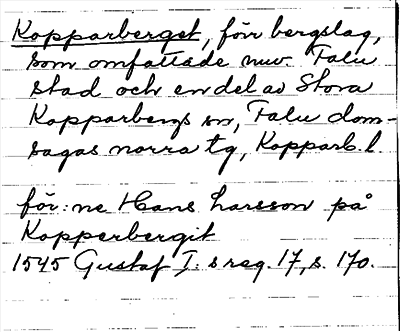 Kopparberget, förr bergslag,
som omfattade nuv. Falu
stad och en del av Stora
Kopparbergs sn, Falu dom-
sagas norra tg, Kopparb. l.
för: ne Hans Larsson på
Kopperbergit
1545 Gustaf I:s reg. 17, s. 170.